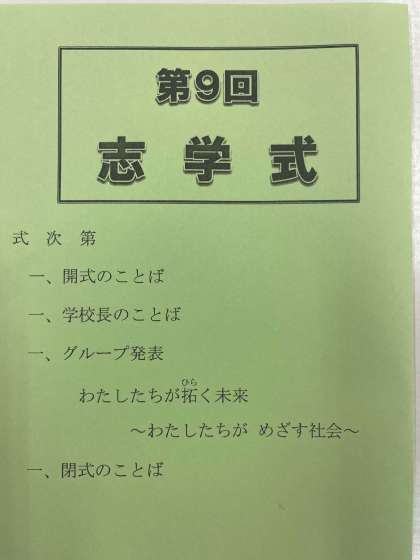 第9回
志学式
式次第
一、開式のことば
一、学校長のことば
一、グループ発表
わたしたちが拓く未来
ひら
～わたしたちが めざす社会～
一、閉式のことば